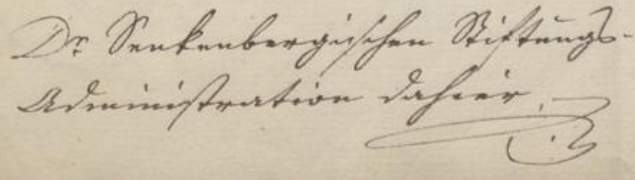 Dr. Senkenbergischen Stiftungs-
Administration dahier.